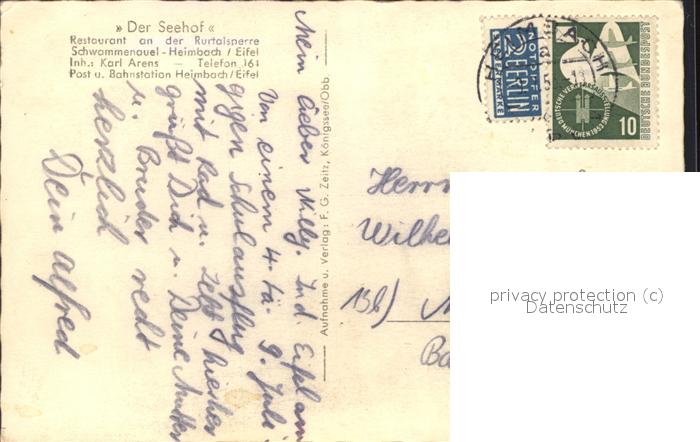 » Der Seehof «
Restaurant an der Rurtalsperre
Schwammenauel - Heimbach / Eifel
Inh.: Karl Arens — Telefon 161
Post u. Bahnstation Heimbach / Eifel
Mein lieber Willy. In d. Eifel am
Von einem 4-tä- 9. Juli
ggen Schulausflug
mit Rad u. Zelt hierher
grüßt Dich u. Deine Mutter
u. Bruder recht
herzlich
Dein Alfred
Aufnahme u. Verlag: F. G. Zeitz, Königssee/Obb.
NOTOPFER
2 BERLIN
STEUERMARKE
DEUTSCHE BUNDESPOST
DEUTSCHE VERKEHRSAUSSTELLUNG
MÜNCHEN 1953
10
Herrn
Wilhe
13b)
Ba
privacy protection (c)
Datenschutz